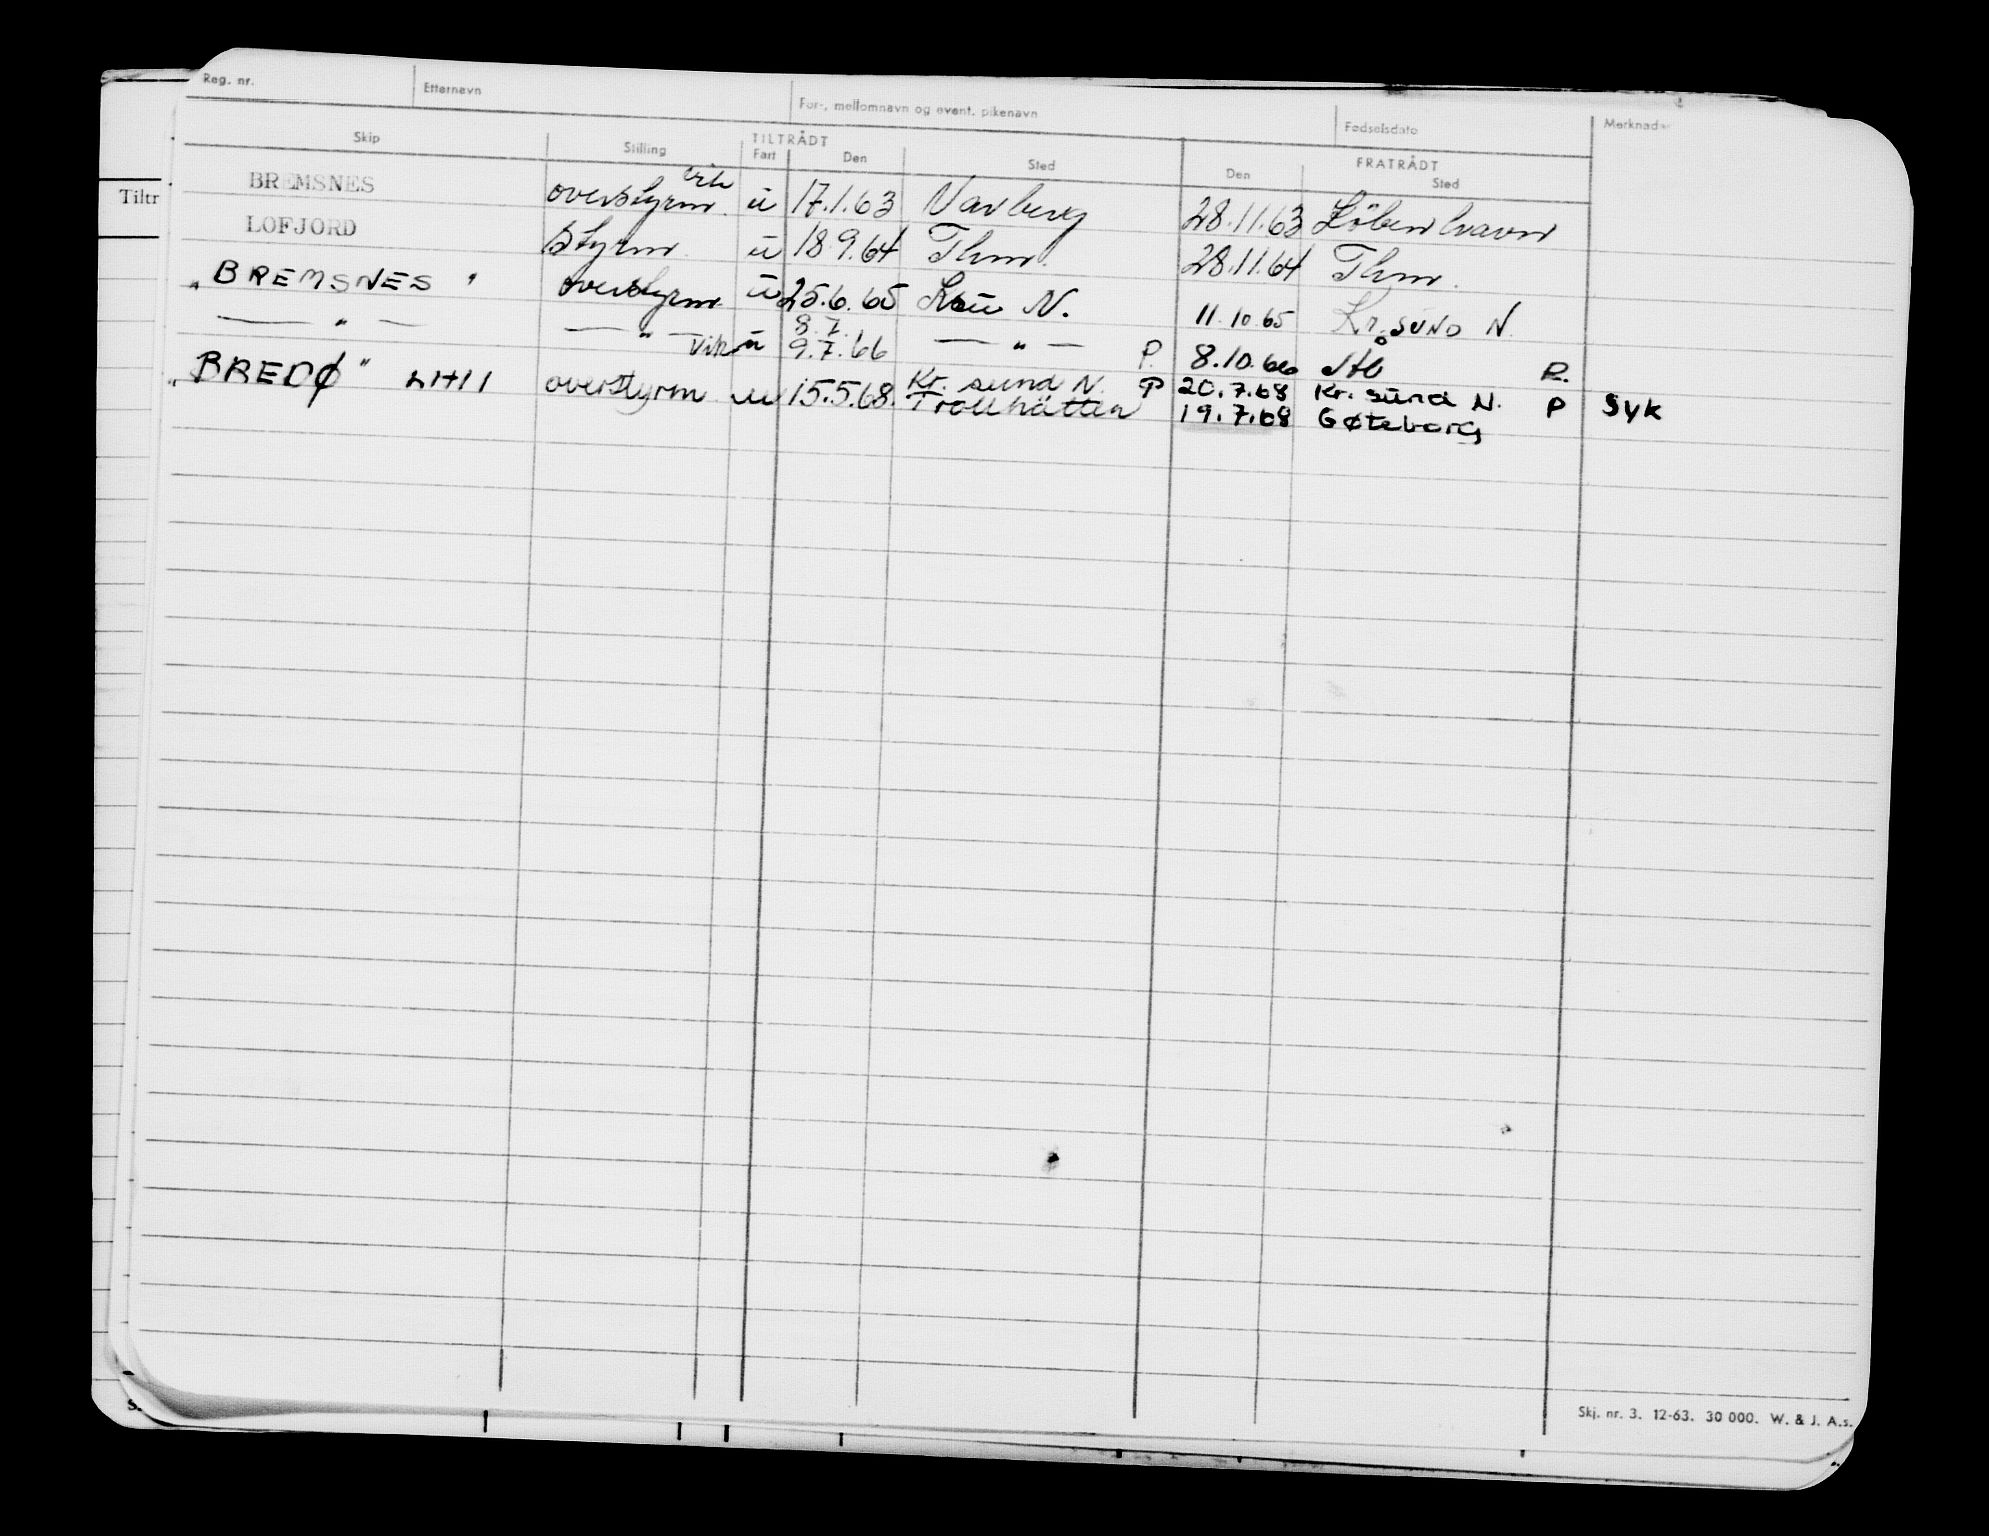 Reg. nr. Etternavn For-, mellomnavn og event. pikenavn Fødselsdato Merknader
Skip Stilling TILTRÅDT Fart Den Sted FRATRÅDT Den Sted
Tiltr
BREMSNES overstyrm. vik ū 17.1.63 Varberg 28.11.63 Köbenhavn
LOFJORD Styrm. ū 18.9.64 Thm. 28.11.64 Thm.
"BREMSNES" overstyrm. ū 25.6.65 Ksū N. 11.10.65 Kr.sund N.
— " — — " — Vik ū 8.7.
9.7.66 — " — P. 8.10.66 P.
"BREDØ" LHII overstyrm u 15.5.68. Kr. sund N. P 20.7.68 Kr. sund N. P Syk
Trollhätten 19.7.68 Gøteborg
Skj. nr. 3. 12-63. 30 000. W. & J. A.s.
S.